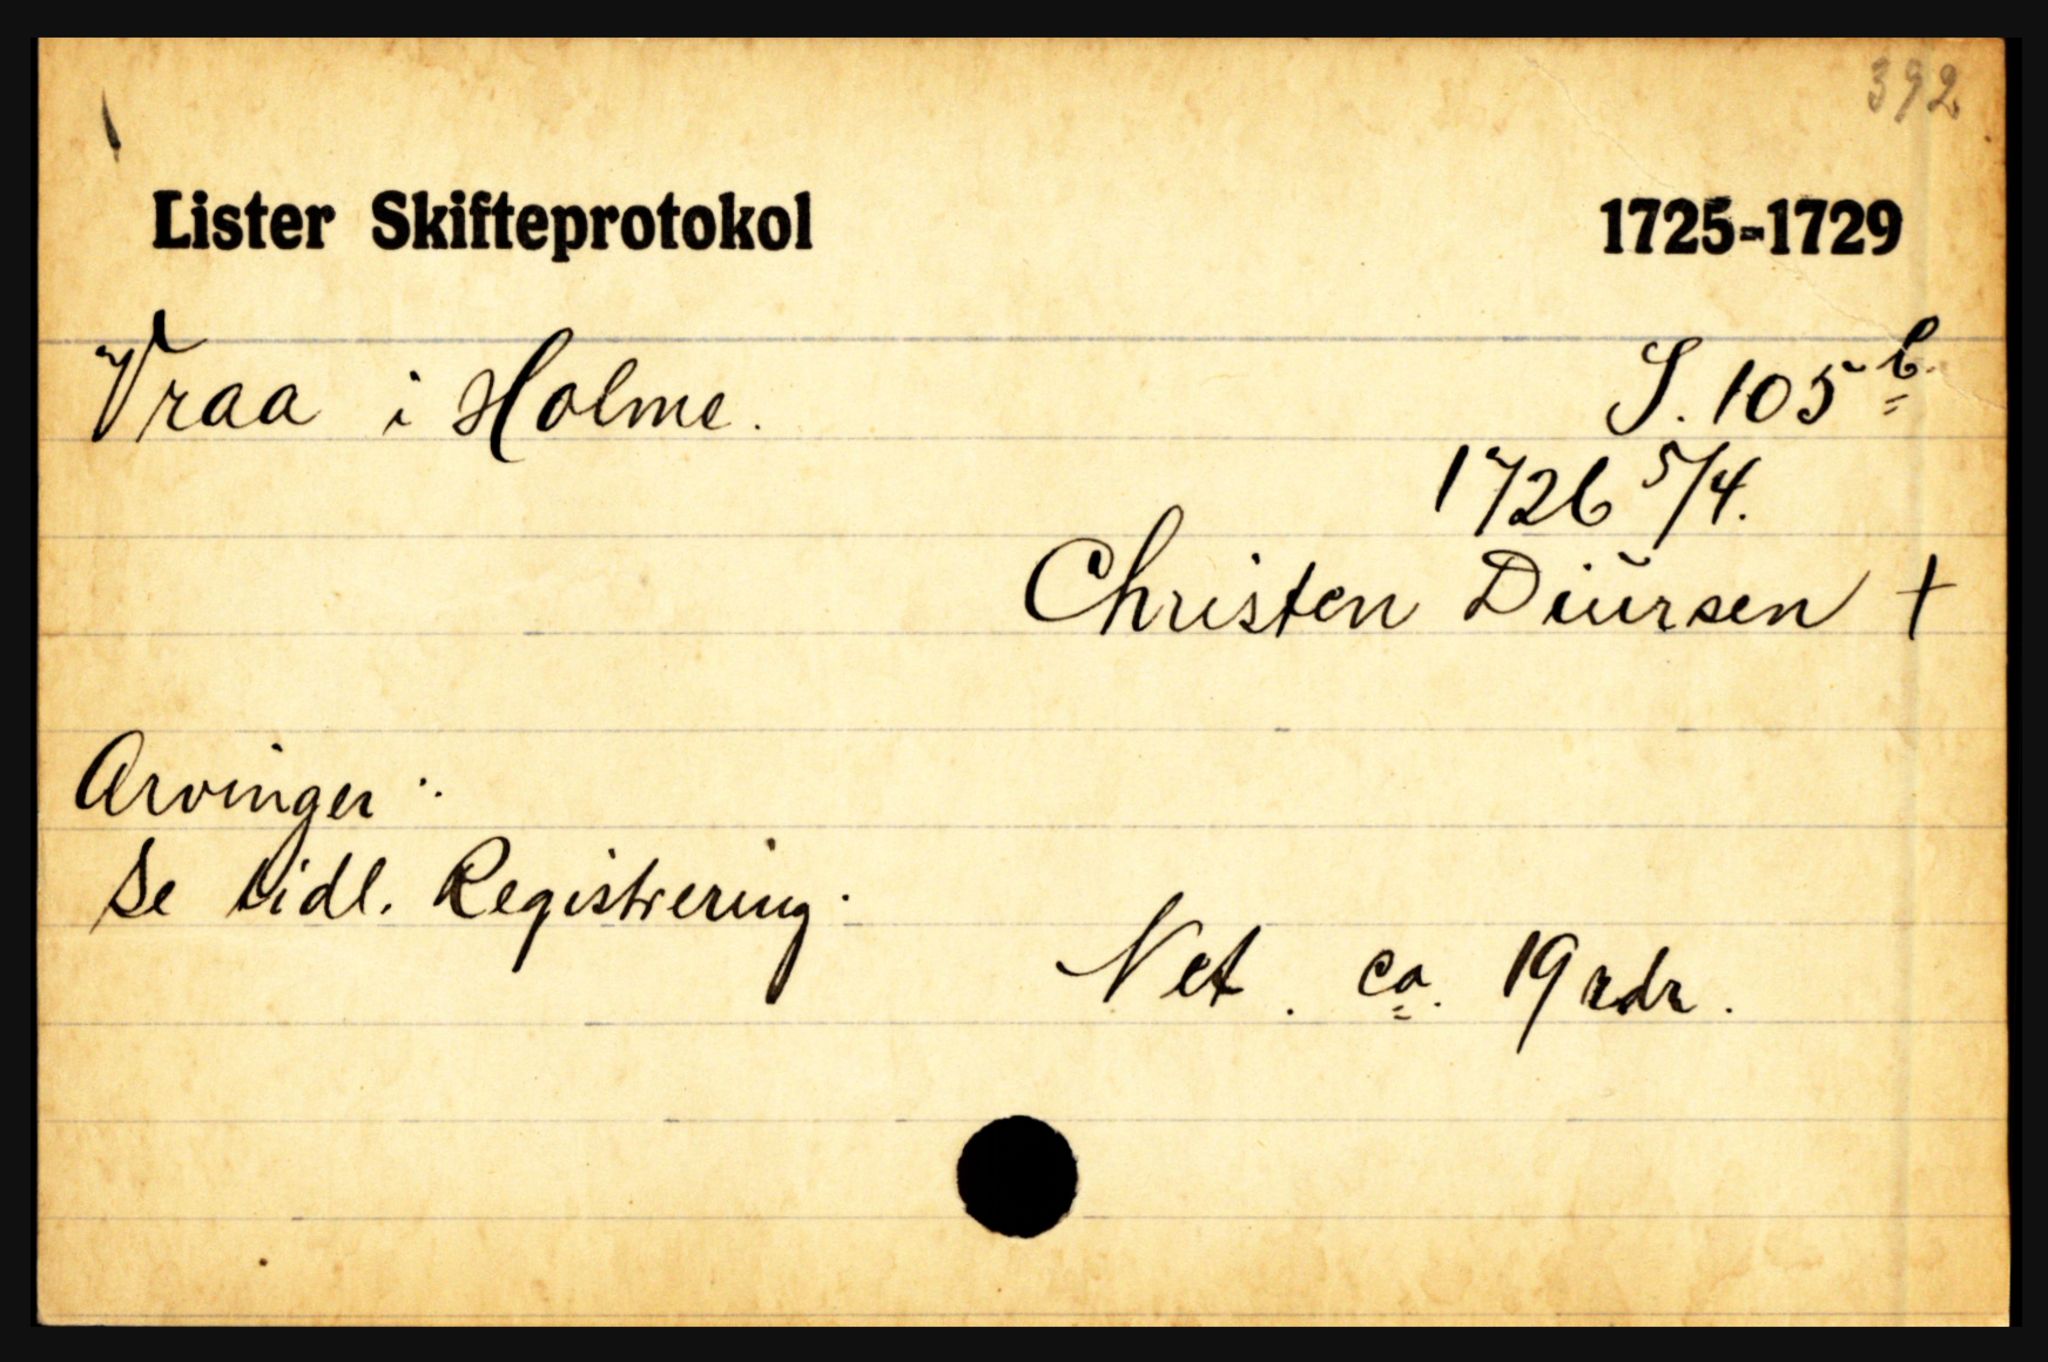 392
Lister Skifteprotokol 1725-1729
Vraa i Holme. S. 105 b.
1726 5/4.
Christen Diŭrsen +
Arvinger:
Se tidl. Registrering.
Net. ca. 19 rdr.